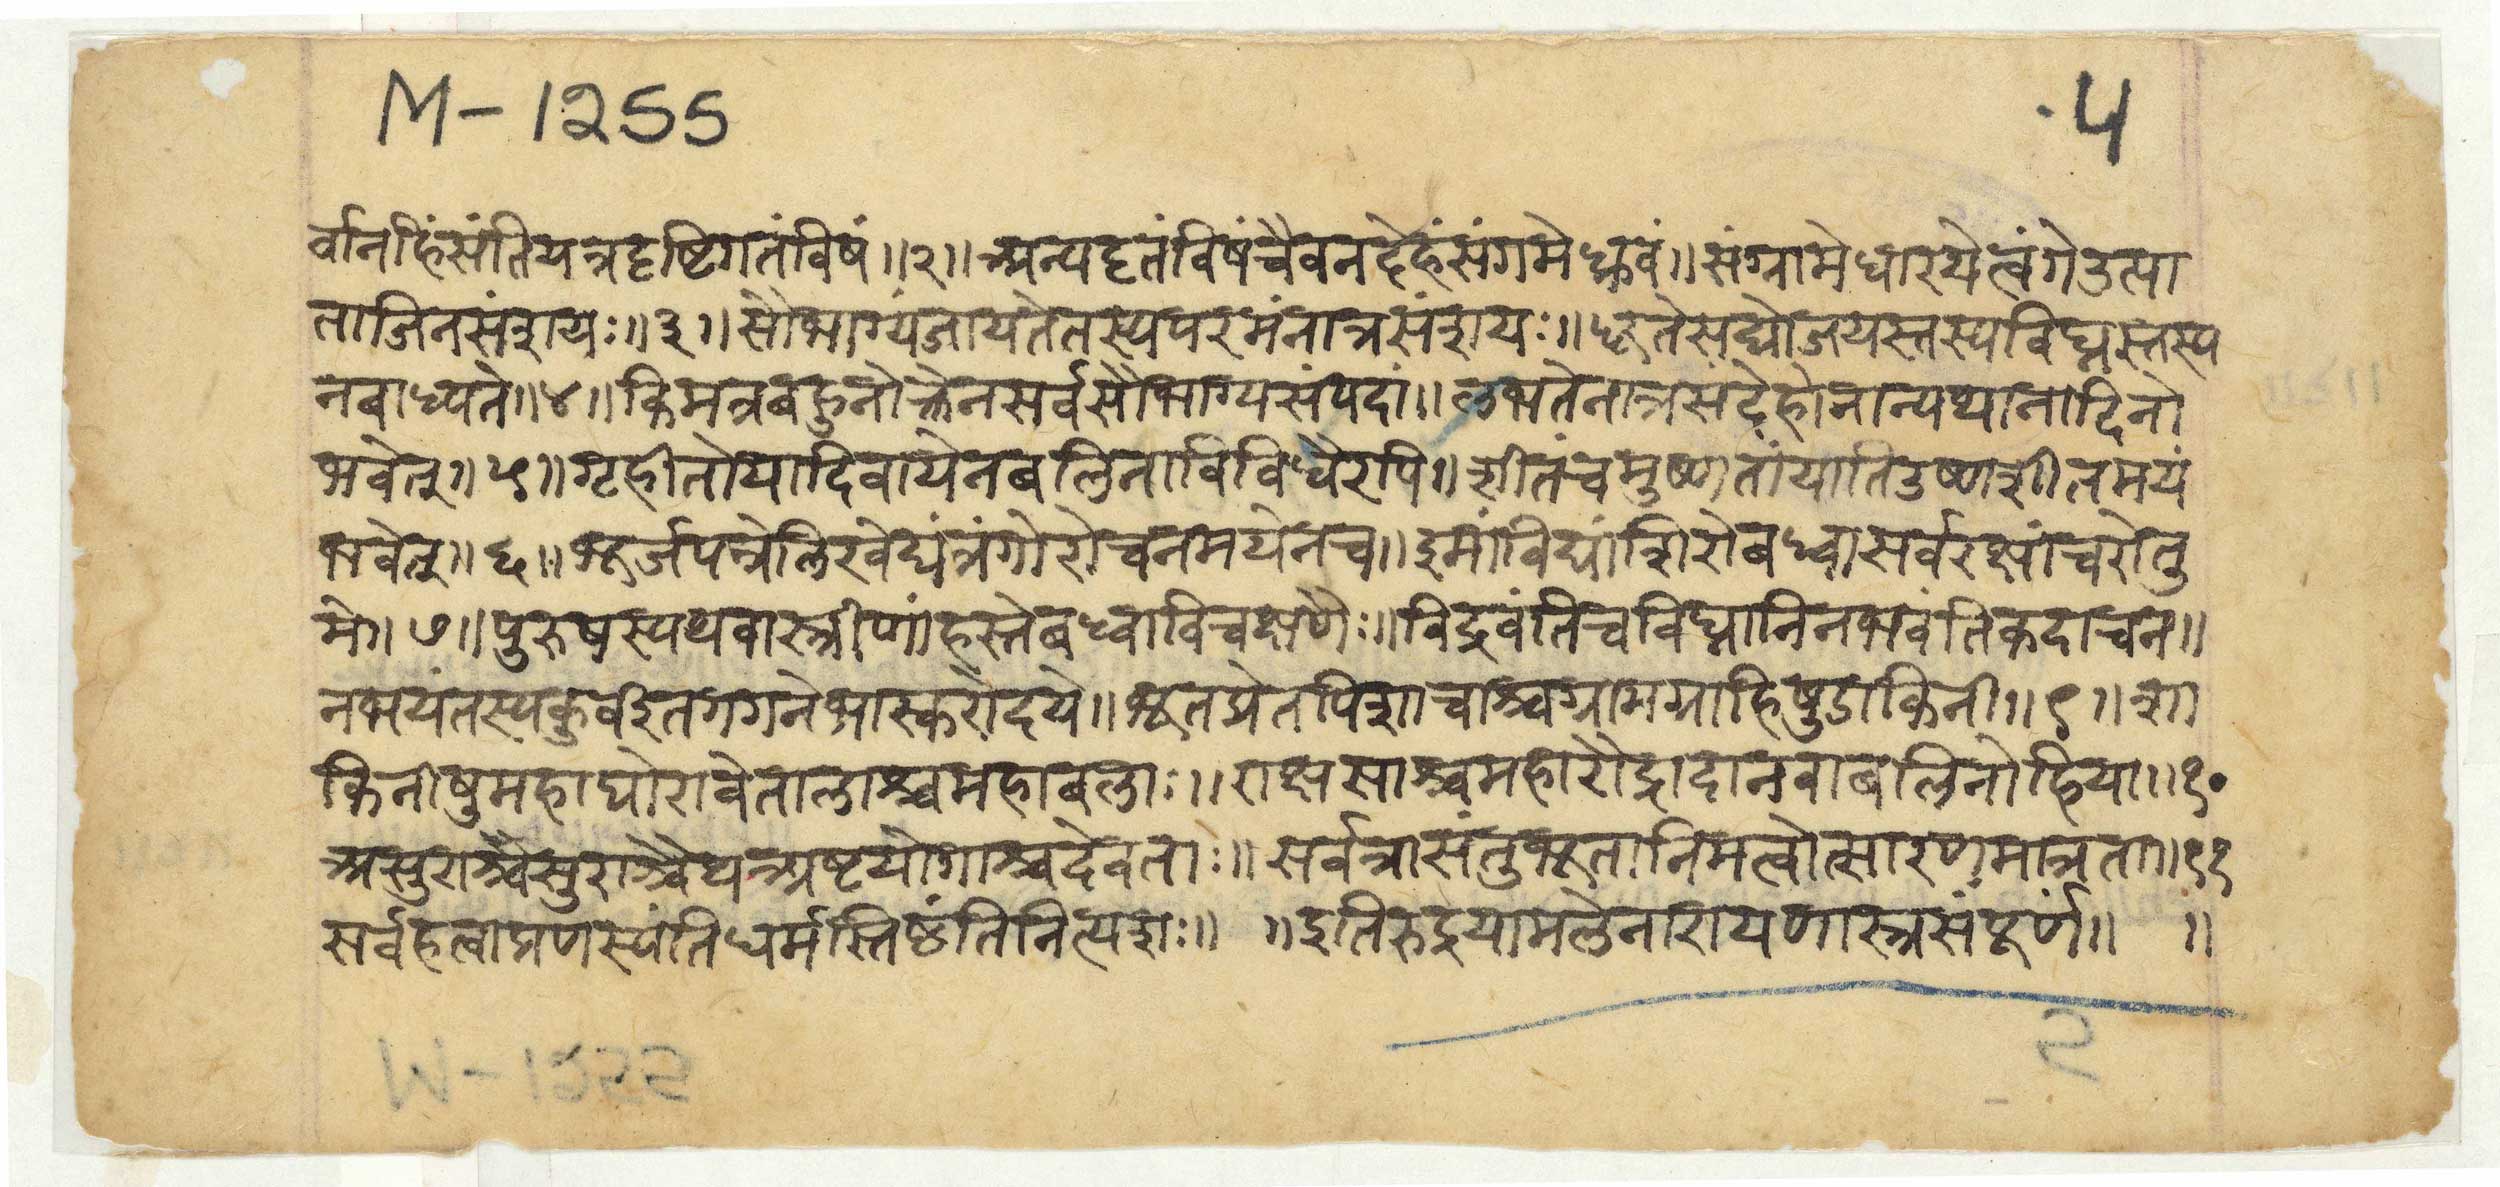 M-1255
4
र्वानहिंसंतियत्रदृष्टिगतंविषं॥२॥अन्यदृतंविषंचैवनदेहंसंगमेध्रुवं॥संग्रामेधारयेत्वंगेउत्पा
ताजिनसंशयः॥३॥सौभाग्यंजायतेतस्यपरमंनात्रसंशयः॥द्यूतेसद्योजयस्तस्यविघ्नस्तस्य
नबाध्यते॥४॥किमत्रबहुनोक्तेनसर्वसौभाग्यसंपदां॥लभतेनात्रसंदेहोनान्यथानादिनो
भवेत्॥५॥गृहीतोयादिवायेनबलिनाविविधैरपि॥शीतंचमुष्णतांयातिउष्णशीतमयं
भवेत्॥६॥भूर्जपत्रेलिखेद्यंत्रंगोरोचनमयेनच॥इमांविद्यांशिरोबध्वासर्वरक्षांचरोतु
मे।७॥पुरुषस्यथवास्त्रीणांहस्तेबध्वाविचक्षणैः॥विद्रवंतिचविघ्नानिनभवंतिकदाचन॥
नभयंतस्यकुवइतगगनेभास्करोदये॥भूतप्रेतपिशाचाश्चग्रामग्राहिषुडाकिनी॥९॥शा
किनीषुमहाघोरावेतालाश्चमहाबलाः॥राक्षसाश्चमहारौद्रादानवाबलिनोहिया॥१०
असुराश्चैसुराश्चैधन्अष्टयोगाश्चदेवताः॥सर्वत्रासंतुभूतानिमत्वोत्सारणमात्रता॥११
सर्वहत्वाप्रणस्यंतिधर्मस्तिष्ठंतिनित्यशः॥ ॥इतिरुद्रयामलेनारायणास्त्रसंपूर्णं॥ ॥